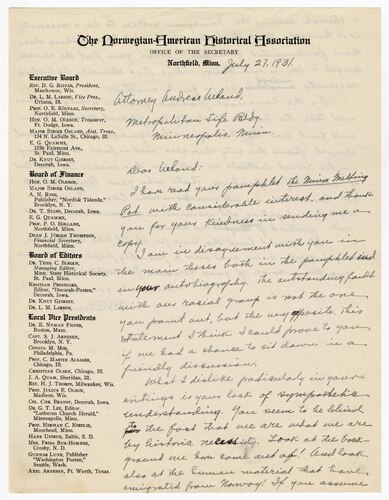 The Norwegian-American Historical Association
OFFICE OF THE SECRETARY
Northfield, Minn. July 27, 1931.
Executive Board
REV. D. G. RISTAD, President,
Manitowoc, Wis.
DR. L. M. LARSON, Vice Pres.,
Urbana, Ill.
PROF. O. E. RÖLVAAG, Secretary,
Northfield, Minn.
HON. O. M. OLESON, Treasurer,
Ft. Dodge, Iowa.
MAJOR BIRGER OSLAND, Asst. Treas.,
134 N. LaSalle St., Chicago, Ill.
E. G. QUAMME,
1556 Fairmont Ave.,
St. Paul, Minn.
DR. KNUT GJERSET,
Decorah, Iowa.
Board of Finance
HON. O. M. OLESON,
MAJOR BIRGER OSLAND,
A. N. RYGG,
Publisher, "Nordisk Tidende,"
Brooklyn, N. Y.
DR. T. STABO, Decorah, Iowa.
E. G. QUAMME,
St. Paul, Minn.
PROF. P. O. HOLLAND,
Northfield, Minn.
DEAN J. JÖRGEN THOMPSON,
Financial Secretary,
Northfield, Minn.
Board of Editors
DR. THEO. C. BLEGEN,
Managing Editor,
Minn. State Historical Society,
St. Paul, Minn.
KRISTIAN PRESTGARD,
Editor, "Decorah-Posten,"
Decorah, Iowa.
DR. KNUT GJERSET,
DR. L. M. LARSON.
Local Vice Presidents
DR. E. NYMAN FIGVED,
Boston, Mass.
CAPT. S. J. ARNESEN,
Brooklyn, N. Y.
CONSUL M. MOE,
Philadelphia, Pa.
PROF. C. MARTIN ALSAGER,
Chicago, Ill.
CHRISTIAN OLSEN, Chicago, Ill.
J. A. QUAM, Sheridan, Ill.
REV. H. J. THORPE, Milwaukee, Wis.
PROF. JULIUS E. OLSON,
Madison, Wis.
COL. CHR. BRANDT, Decorah, Iowa.
DR. G. T. LEE, Editor
"Lutheran Church Herald,"
Minneapolis, Minn.
PROF. HERMAN C. NORDLIE,
Moorhead, Minn.
HANS USTRUD, Baltic, S. D.
MRS. FRIDA BUE-HOMNES,
Crosby, N. D.
GUNNAR LUND, Publisher
"Washington Posten,"
Seattle, Wash.
AXEL ARNESON, Ft. Worth, Texas.
Attorney Andreas Ueland,
Metropolitan Life Bldg.
Minneapolis, Minn.
Dear Ueland:
I have read your pamphlet the Minor Melting
Pot with considerable interest, and thank
you for your kindness in sending me a
copy.
I am in disagreement with you in
the main theses both in the pamphlet and
in your autobiography. The outstanding fault
with our racial group is not the one
you point out, but the very opposite. This
statement I think I could prove to you
if we had a chance to sit down in a
friendly discussion.
What I dislike particularly in your
writings is your lack of sympathetic
understanding. You seem to be blind
to the fact that we are what we are
by historic necessity. Look at the back-
ground we have come out of! And look
also at the human material that have
emigrated from Norway! If you assume